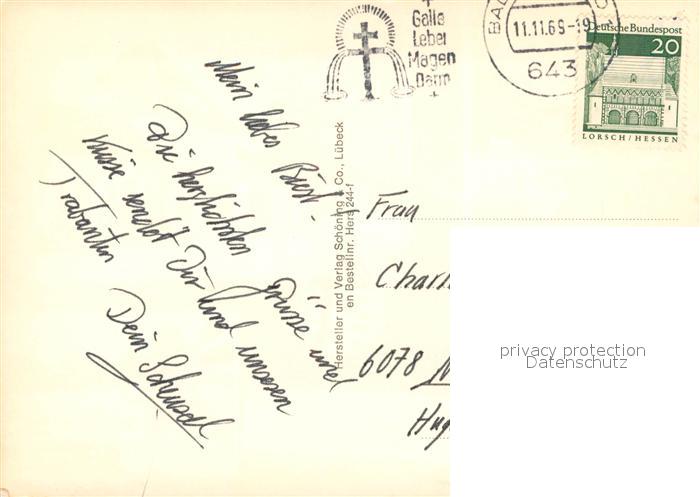 +
Galle
Leber
Magen
Darm
+
BAD
11.11.69-19
643
Deutsche Bundespost
20
LORSCH/HESSEN
Mein liebes Biest.
Die herzlichsten Grüsse und
Küsse sendet Dir und unseren
Trabanten
Dein Scheusal
Hersteller und Verlag Schöning & Co., Lübeck
en Bestellnr. Hers 244-f
Frau
Charl
6078 N
Hug
privacy protection
Datenschutz